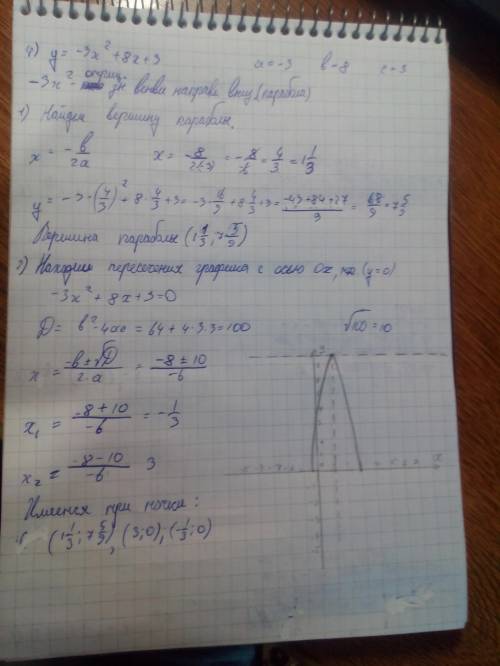 4) y = -3x² + 8x + 3 a = -3 b = 8 c = 3
-3x² - отриц. зн ветви направл вниз (парабола)
1) Найдем вершину параболы.
x = -b/2a x = -8/2·(-3) = -8/-6 = 4/3 = 1 1/3
y = -3·(4/3)² + 8·4/3 + 3 = = 68/9 = 7 5/9
Вершина параболы (1 1/3; 7 5/9)
2) Находим пересечения графика с осью Ox, (y=0)
-3x² + 8x + 3 = 0
D = b² - 4ac = 64 + 4·3·3 = 100 √100 = 10
x = -b±√D / 2·a = -8 ± 10 / -6
x₁ = -8 + 10 / -6 = -1/3
x₂ = -8 - 10 / -6 3
Имеются три точки:
(1 1/3; 7 5/9), (3; 0), (-1/3; 0)